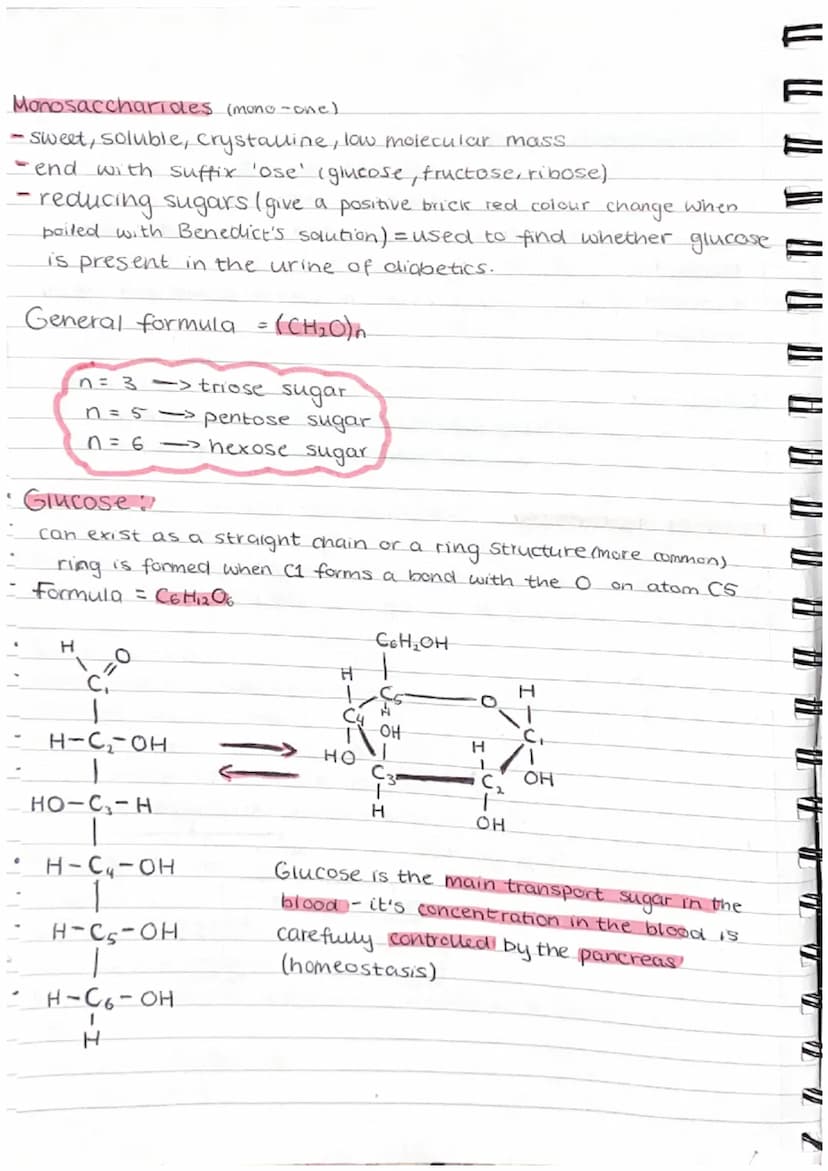 Monosaccharides (mono-one)
- sweet, soluble, crystalline, low molecular mass
- end with suffix 'ose' (glucose, fructose, ribose)
- reducing sugars (give a positive brick red colour change when
boiled with Benedict's solution) = used to find whether glucose
is present in the urine of diabetics.
General formula = (CH₂O)n
n = 3 —> triose sugar
n = 5 —> pentose sugar
n = 6 —> hexose sugar
Glucose:
can exist as a straight chain or a ring structure (more common)
ring is formed when C1 forms a bond with the O on atom C5
formula = C₆H₁₂O₆
H O
C₁
H-C₂-OH
HO-C₃-H
H-C₄-OH
H-C₅-OH
H-C₆-OH
H
C₆H₂OH
H C₅ O H
C₄ H C₁
HO OH H OH
C₃ C₂
H OH
Glucose is the main transport sugar in the
blood - it's concentration in the blood is
carefully controlled by the pancreas
(homeostasis)